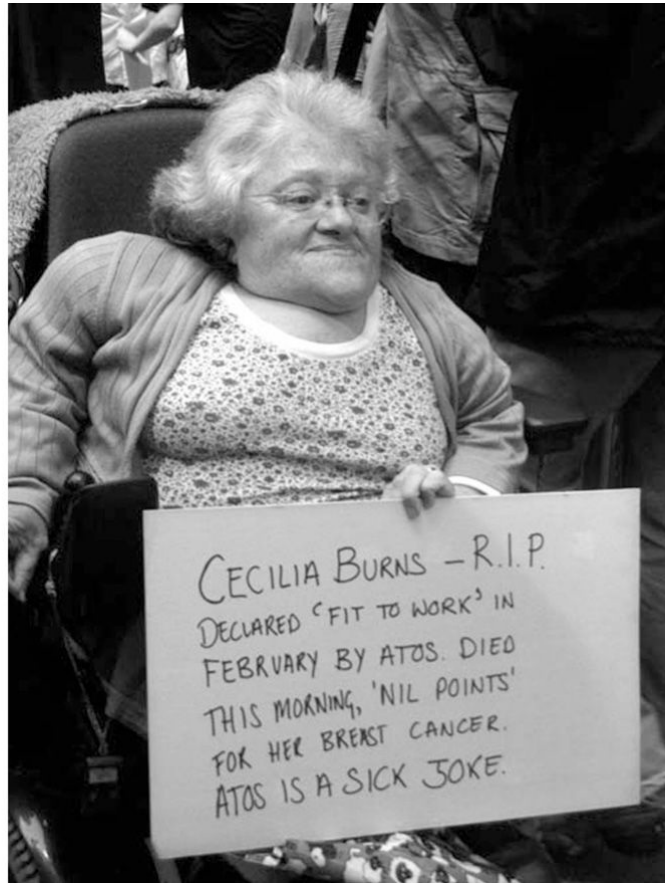 CECILIA BURNS – R.I.P.
DECLARED 'FIT TO WORK' IN
FEBRUARY BY ATOS. DIED
THIS MORNING, 'NIL POINTS'
FOR HER BREAST CANCER.
ATOS IS A SICK JOKE.